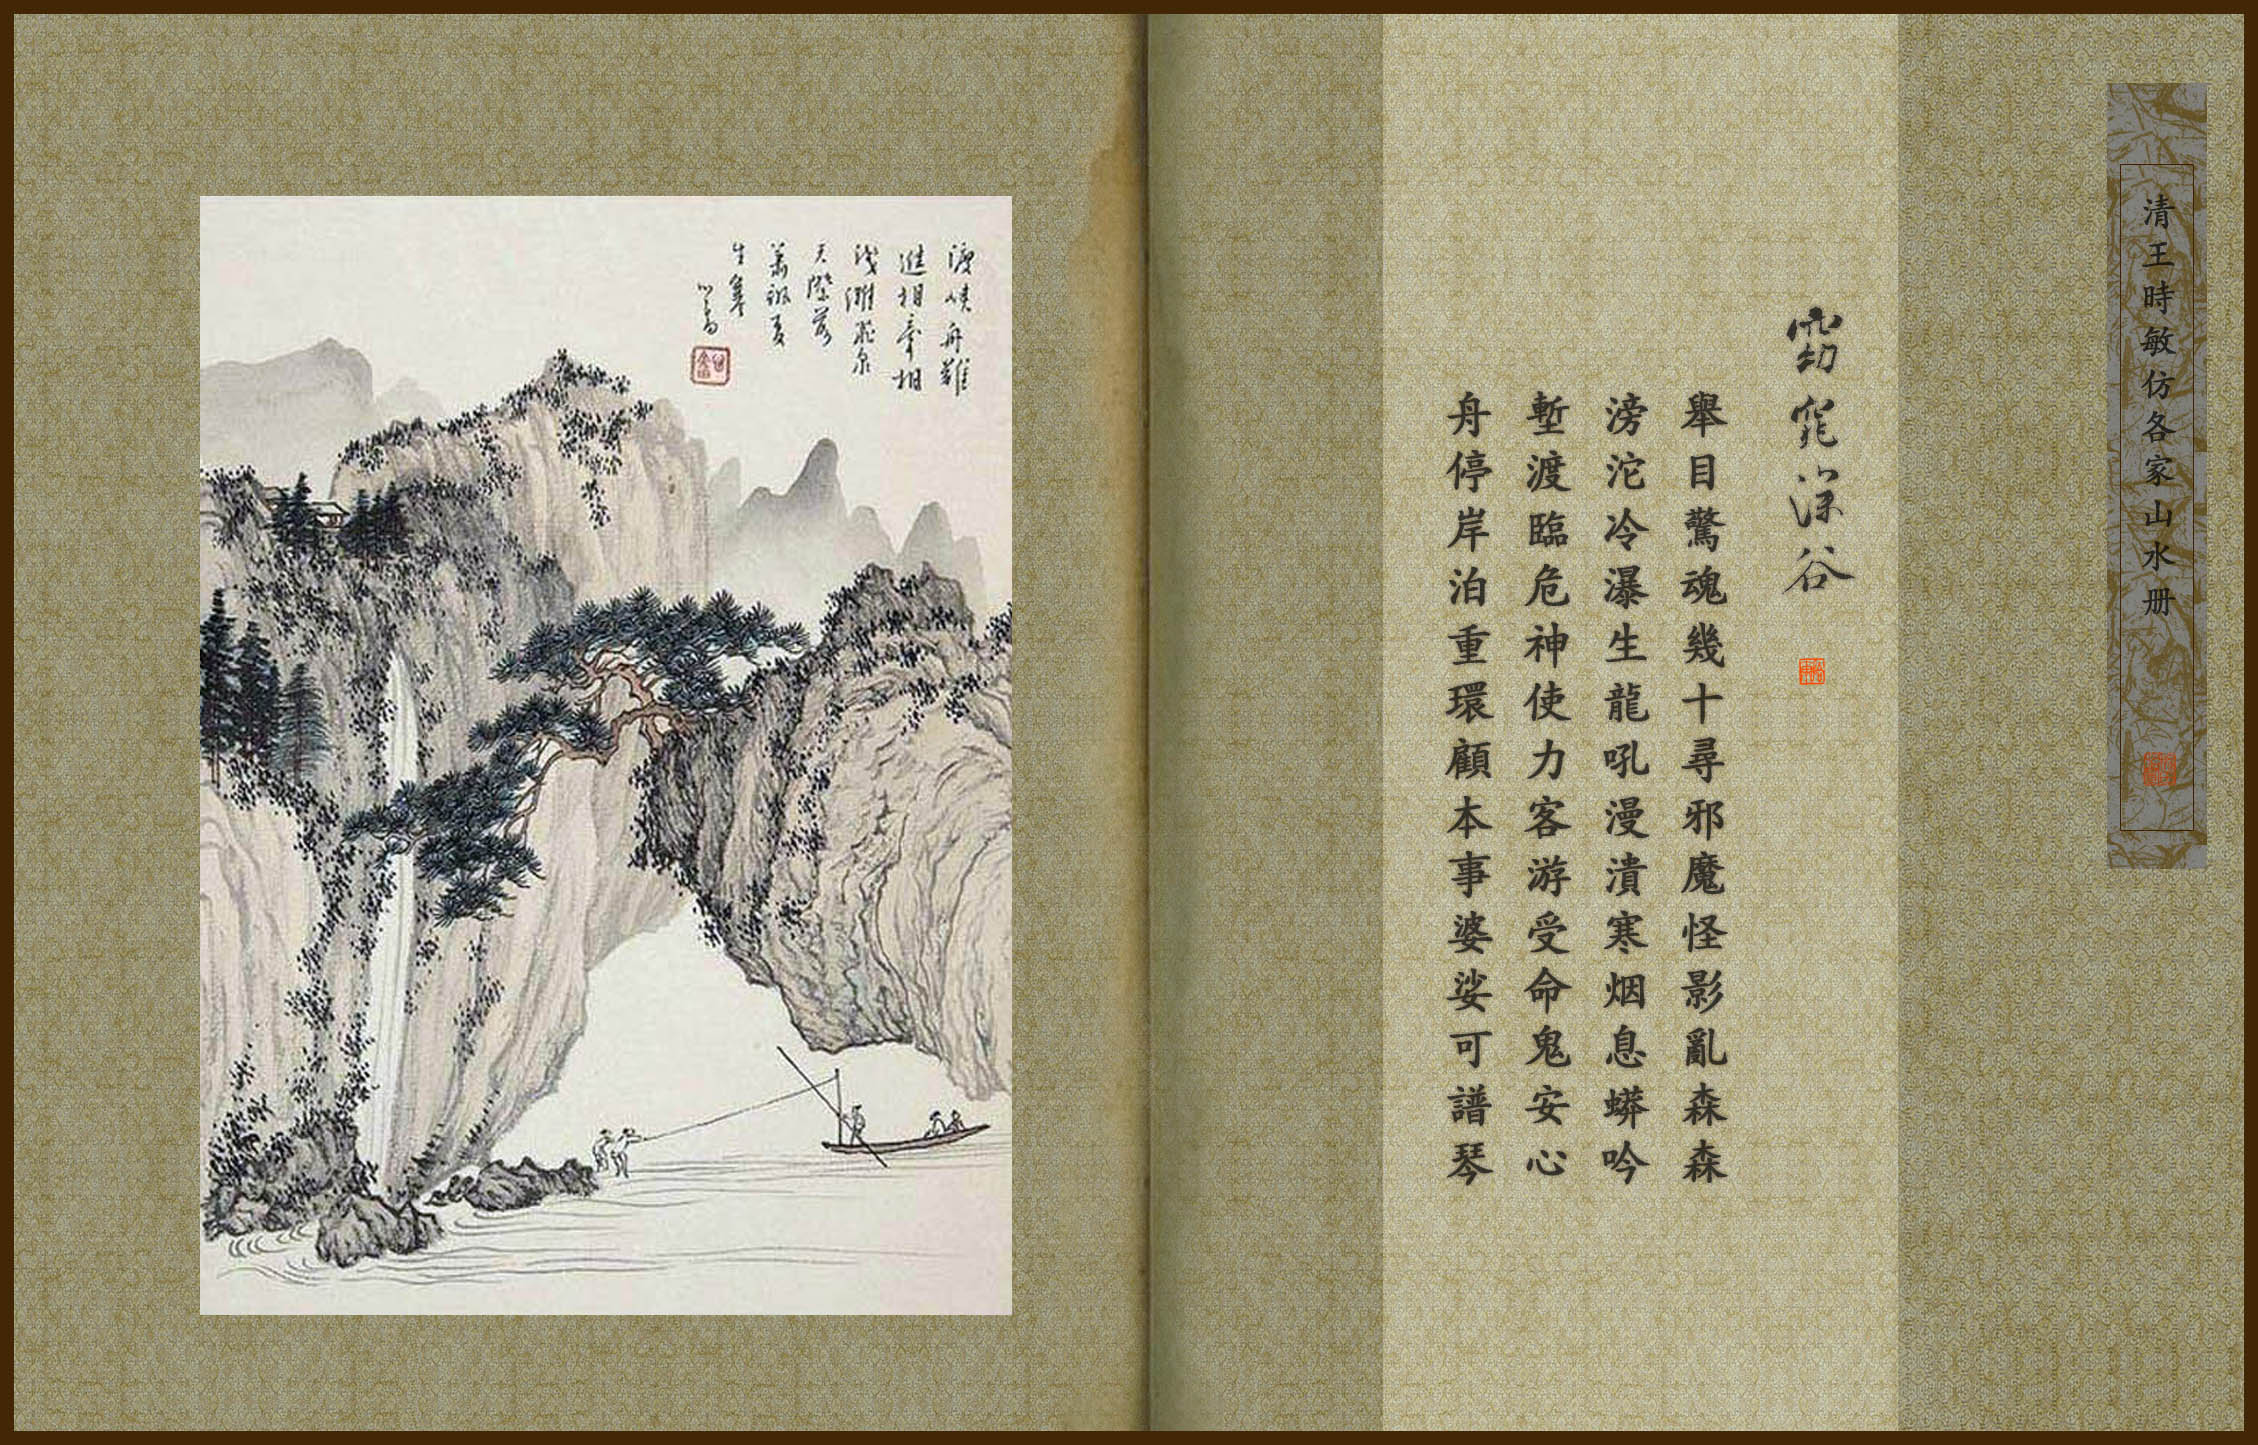 清王時敏仿各家山水册
窈窕深谷
舉目驚魂幾十尋邪魔怪影亂森森
滂沱冷瀑生龍吼漫潰寒烟息蟒吟
塹渡臨危神使力客游受命鬼安心
舟停岸泊重環顧本事婆娑可譜琴
渡峽舟難
進相牽相
淺灘飛泉
天際落
蕭颯夏
生寒